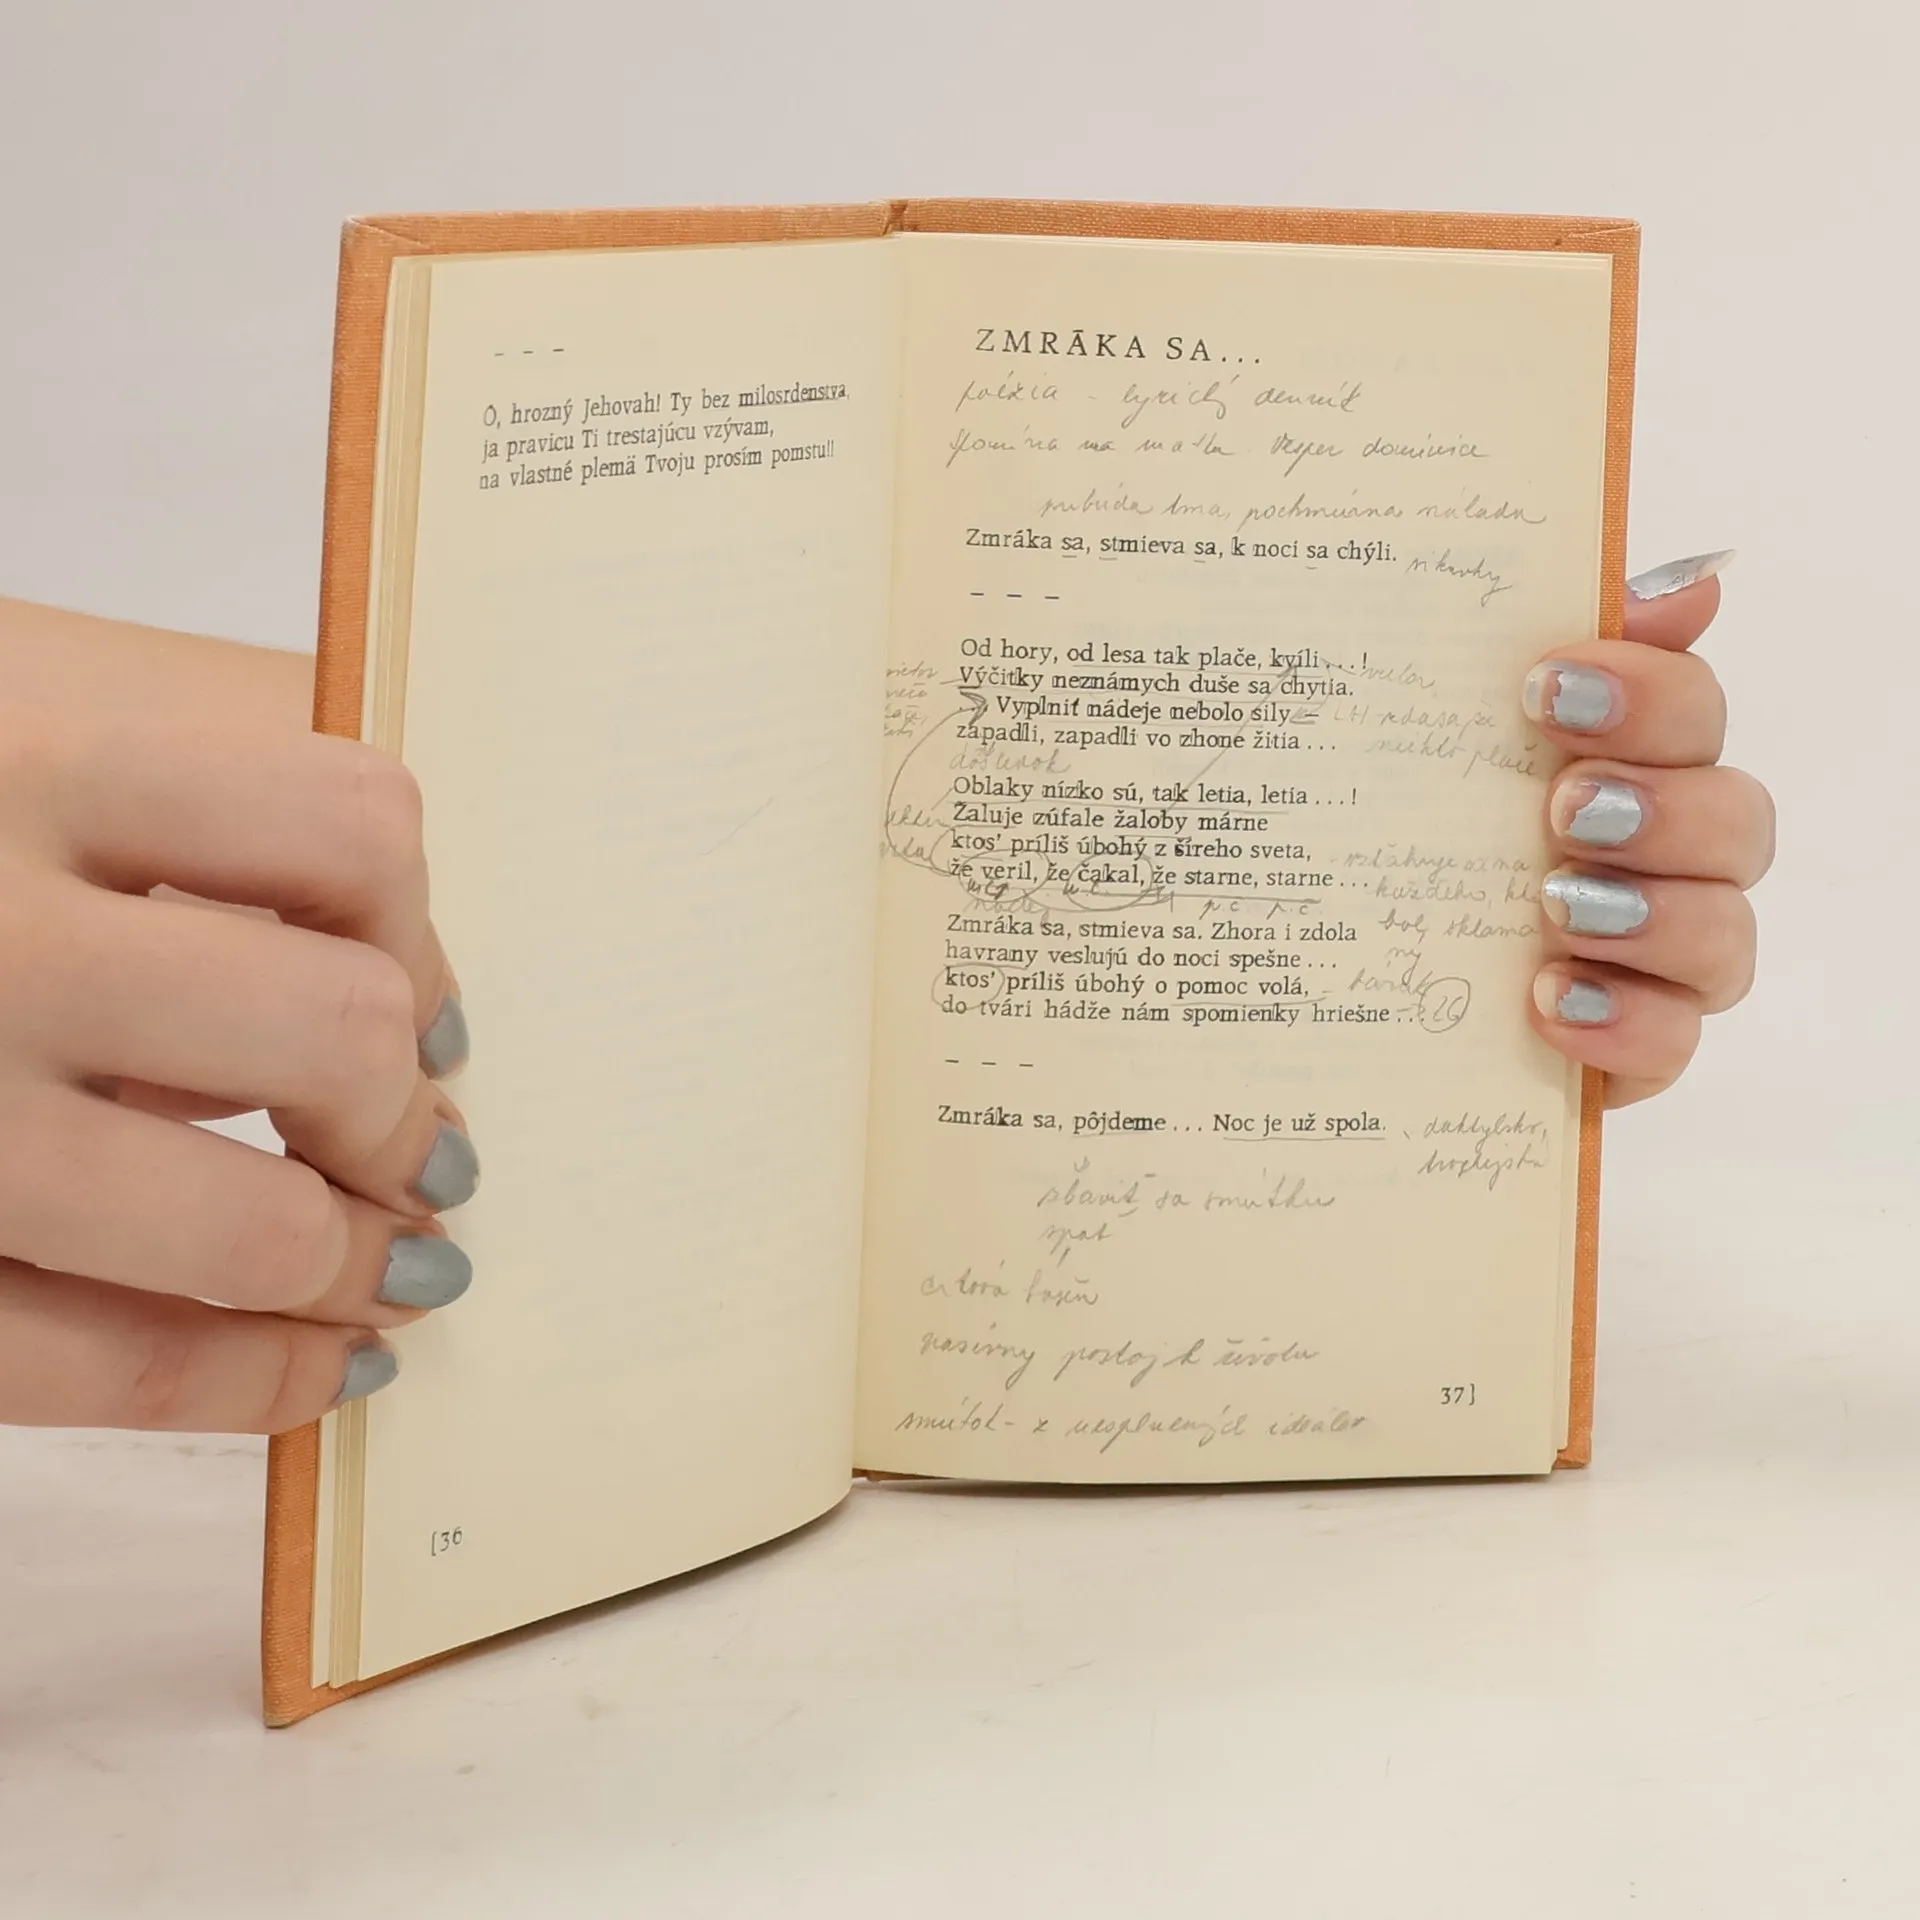 – – –
Ó, hrozný Jehovah! Ty bez milosrdenstva,
ja pravicu Ti trestajúcu vzývam,
na vlastné plemä Tvoju prosím pomstu!!
[36
ZMRÁKA SA...
poézia - lyrický denník
spomína na matku. Vesper dominicae
pribúda tma, pochmúrna nálada
Zmráka sa, stmieva sa, k noci sa chýli.
sikavky
– – –
Od hory, od lesa tak plače, kvíli...!
Výčitky neznámych duše sa chytia.
... Vyplniť nádeje nebolo sily –
LH zdasa mu
zapadli, zapadli vo zhone žitia...
niekto plače
Oblaky nízko sú, tak letia, letia...!
Žaluje zúfale žaloby márne
ktos' príliš úbohý z šíreho sveta,
- vzťahuje sa na
že veril, že čakal, že starne, starne...
každého, kto
p.č. p.č.
Zmráka sa, stmieva sa. Zhora i zdola
bol sklama
havrany veslujú do noci spešne...
ný
ktos' príliš úbohý o pomoc volá,
- básnik
do tvári hádže nám spomienky hriešne...
26
– – –
Zmráka sa, pôjdeme... Noc je už spola.
daktylsko,
trochejská
zbaviť sa smútku
spať
citová báseň
pasívny postoj k životu
smútok - z nesplnených ideálov
37]